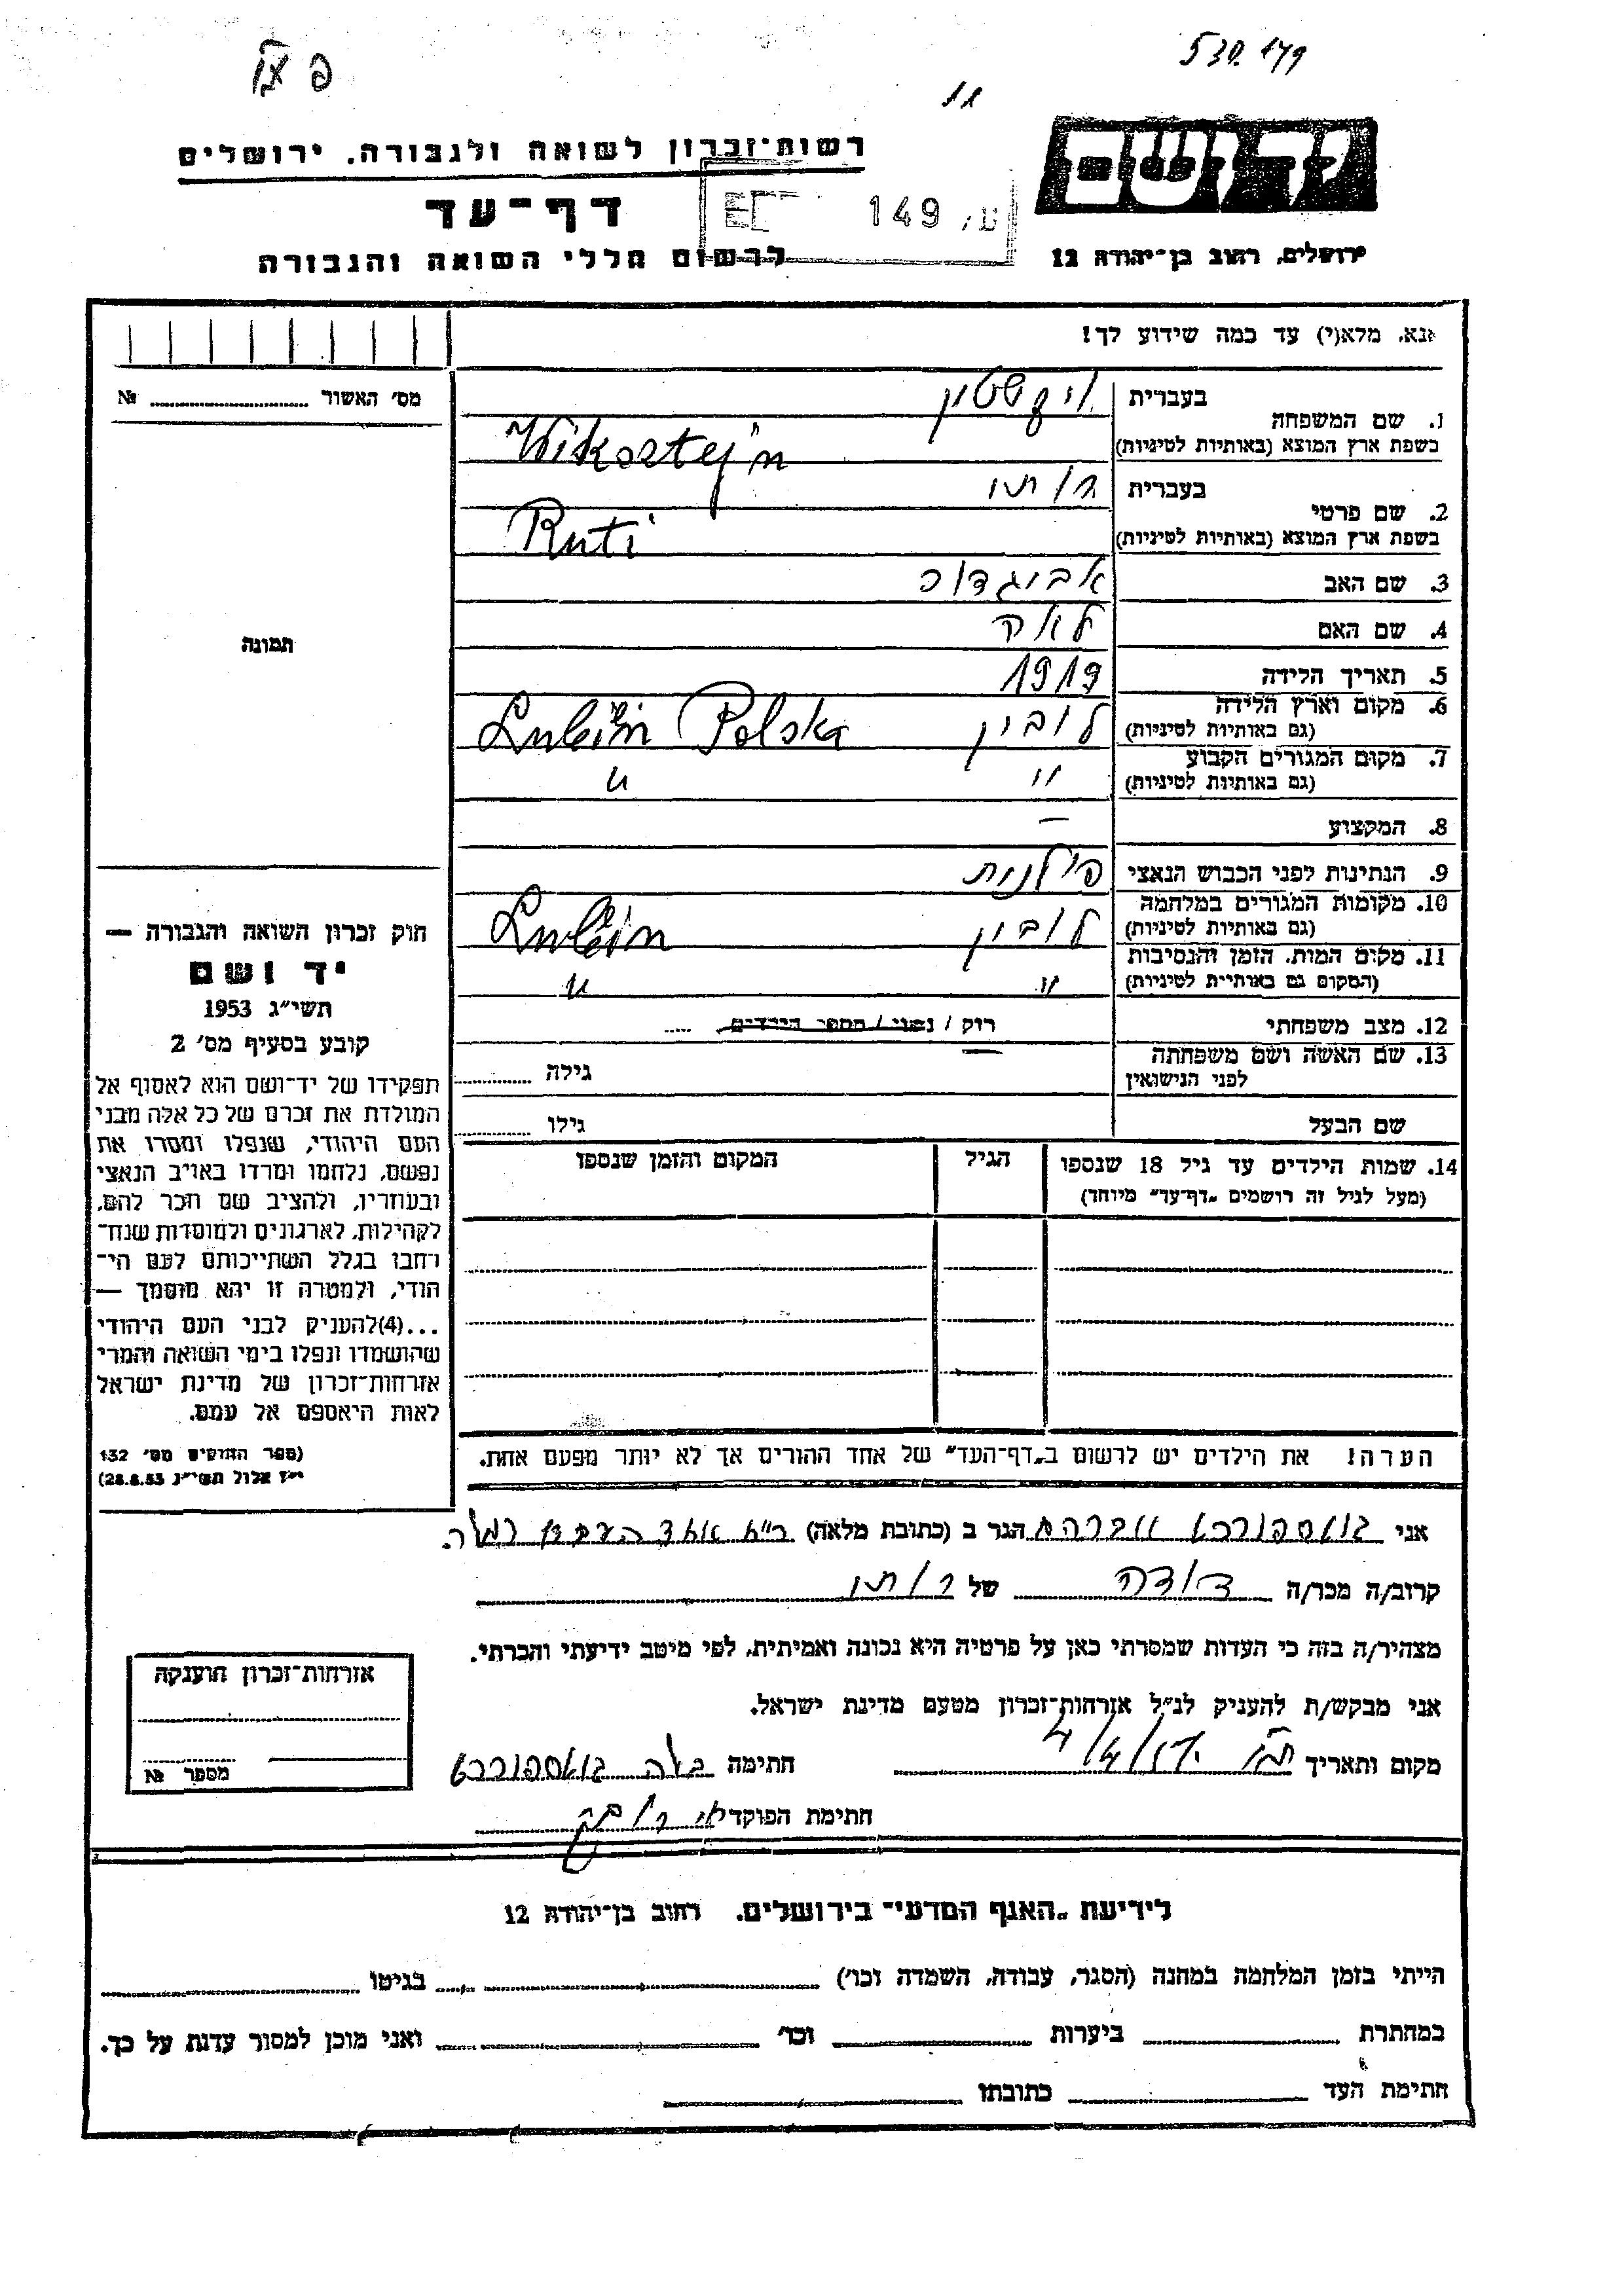 530.179
11
יד ושם
ירושלים, רחוב בן־יהודה 12
רשות־זכרון לשואה ולגבורה, ירושלים
149 /ע
דף־עד
לרשום חללי השואה והגבורה
אנא, מלא(י) עד כמה שידוע לך!
מס' האשור № 
1. שם המשפחה
בעברית ויקשטין
בשפת ארץ המוצא (באותיות לטיניות) Wiksztejn
2. שם פרטי
בעברית רותי
בשפת ארץ המוצא (באותיות לטיניות) Ruti
3. שם האב אביגדור
4. שם האם לאה
תמונה
5. תאריך הלידה 1919
6. מקום וארץ הלידה (גם באותיות לטיניות) לובלין Lublin Polska
7. מקום המגורים הקבוע (גם באותיות לטיניות) " "
8. המקצוע —
9. הנתינות לפני הכבוש הנאצי פולנית
10. מקומות המגורים במלחמה (גם באותיות לטיניות) לובלין Lublin
11. מקום המות, הזמן והנסיבות (המקום גם באותיות לטיניות) " "
12. מצב משפחתי רוק / נשוי / מספר הילדים .....
13. שם האשה ושם משפחתה לפני הנישואין — גילה
שם הבעל גילו
14. שמות הילדים עד גיל 18 שנספו הגיל המקום והזמן שנספו
(מעל לגיל זה רושמים "דף־עד" מיוחד)
חוק זכרון השואה והגבורה —
יד ושם
תשי"ג 1953
קובע בסעיף מס' 2
תפקידו של יד־ושם הוא לאסוף אל
המולדת את זכרם של כל אלה מבני
העם היהודי, שנפלו ומסרו את
נפשם, נלחמו ומרדו באויב הנאצי
ובעוזריו, ולהציב שם וזכר להם,
לקהילות, לארגונים ולמוסדות שנח־
רבו בגלל השתייכותם לעם הי־
הודי, ולמטרה זו יהא מוסמך —
...(4)להעניק לבני העם היהודי
שהושמדו ונפלו בימי השואה והמרי
אזרחות־זכרון של מדינת ישראל
לאות היאספם אל עמם.
(ספר החוקים מס' 132
י"ז אלול תשי"ג 28.8.53)
הערה! את הילדים יש לרשום ב"דף־העד" של אחד ההורים אך לא יותר מפעם אחת.
אני הגר ב (כתובת מלאה)
קרוב/ה מכר/ה דודה של רותי
מצהיר/ה בזה כי העדות שמסרתי כאן על פרטיה היא נכונה ואמיתית, לפי מיטב ידיעתי והכרתי.
אני מבקש/ת להעניק לנ"ל אזרחות־זכרון מטעם מדינת ישראל.
מקום ותאריך חתימה
חתימת הפוקד
אזרחות־זכרון הוענקה
מספר №
לידיעת "האגף המדעי" בירושלים, רחוב בן־יהודה 12
הייתי בזמן המלחמה במחנה (הסגר, עבודה, השמדה וכו') בגיטו
במחתרת ביערות וכו' ואני מוכן למסור עדות על כך.
חתימת העד כתובתו